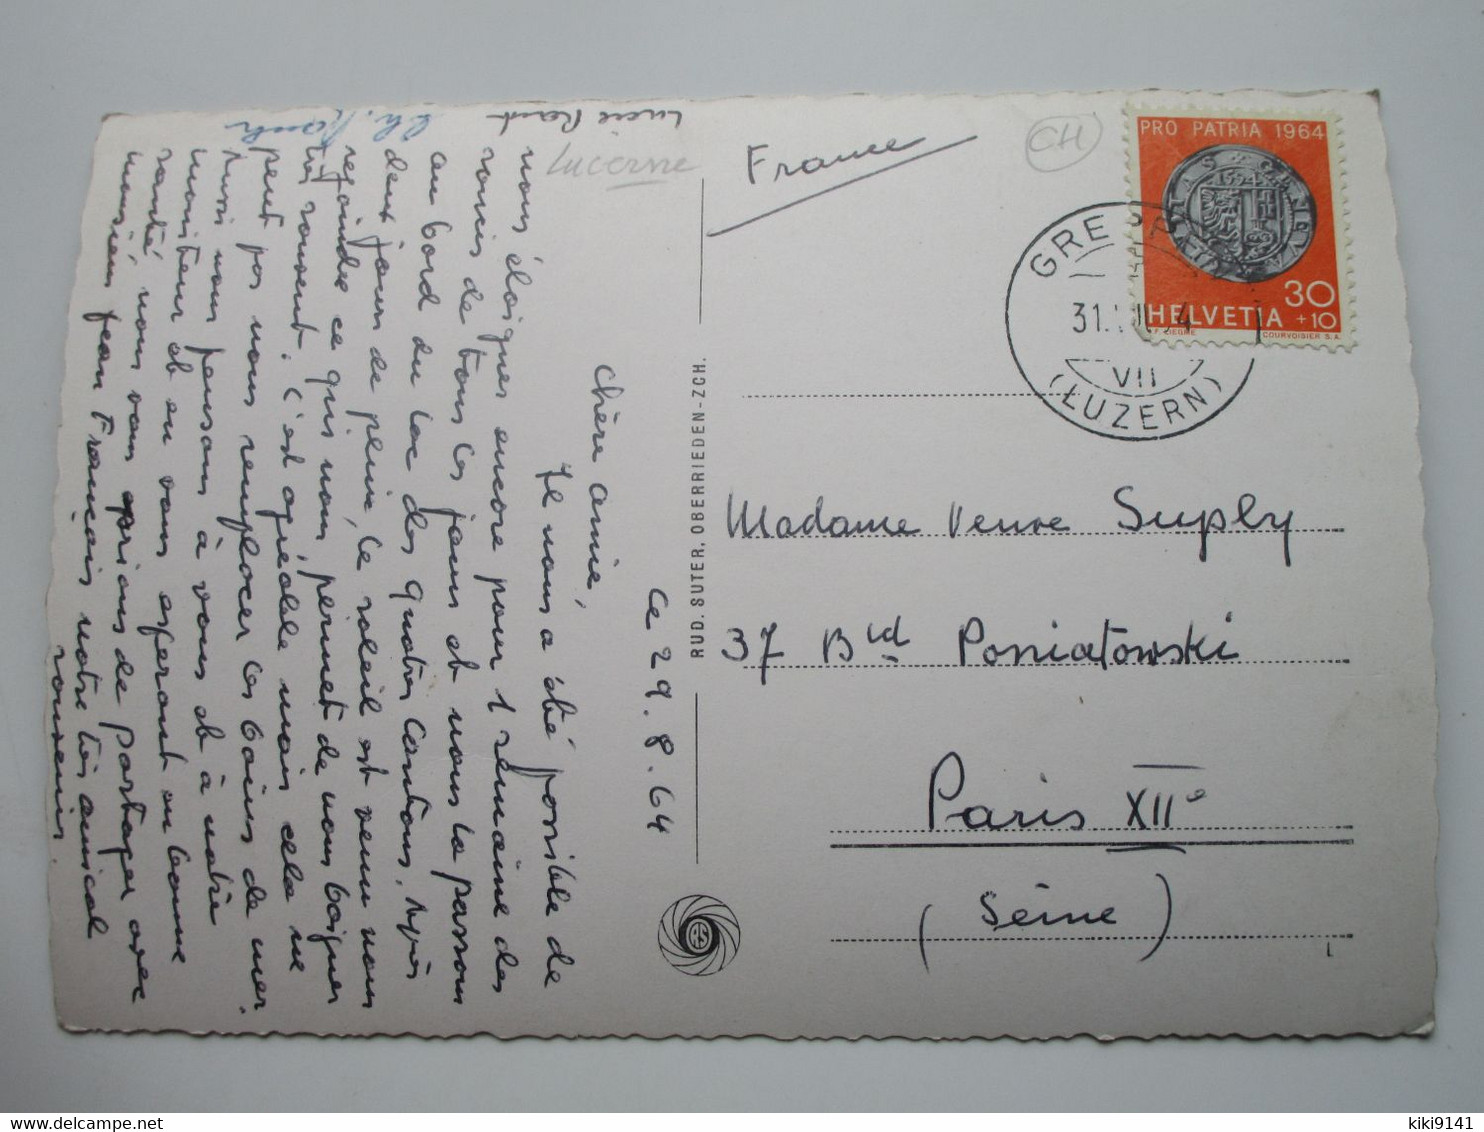 Ce 29.8.64
Chère amie,
Il nous a été possible de
nous éloigner encore pour 1 semaine des
soucis de tous les jours et nous la passons
au bord du lac des quatre cantons. Après
deux jours de pluie, le soleil est venu nous
rejoindre ce qui nous permet de nous baigner
très souvent. C'est agréable mais cela ne
peut pas nous remplacer les bains de mer.
Aussi nous pensons à vous et à notre
moniteur et en vous espérant en bonne
santé, nous vous prions de partager avec
monsieur Jean François notre très amical
souvenir.
Lucie
Lucerne
RUD. SUTER, OBERRIEDEN-ZCH.
France
CH
PRO PATRIA 1964
30
+10
HELVETIA
COURVOISIER S.A.
31.
VII
(LUZERN)
Madame Veuve Suply
37 Bld Poniatowski
Paris XIIe
(Seine)
kiki9141